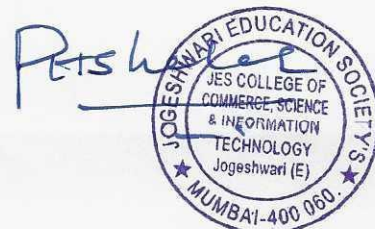 JOGESHWARI EDUCATION SOCIETY'S
JES COLLEGE OF
COMMERCE, SCIENCE
& INFORMATION
TECHNOLOGY
Jogeshwari (E)
★ MUMBAI-400 060. ★